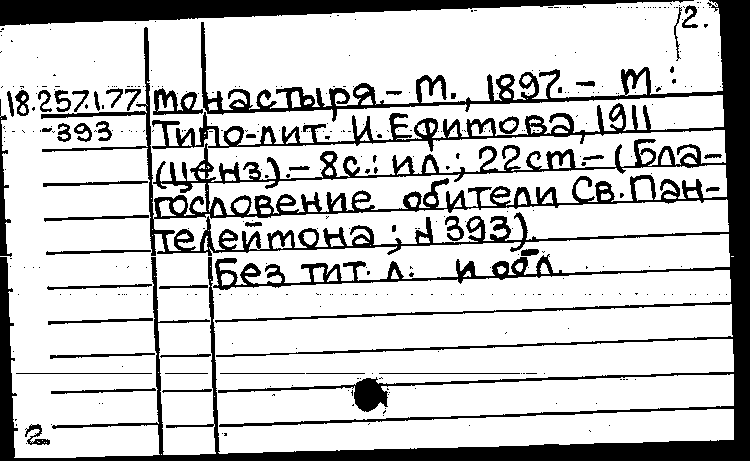 2.
18.257.1.77- монастыря.- М., 1897.- М.:
-393 Типо-лит. И. Ефимова, 1911
(ценз.).- 8с.: ил.; 22см.- (Бла-
гословение обители Св. Пан-
телеймона; № 393).
Без тит. л. и обл.
2